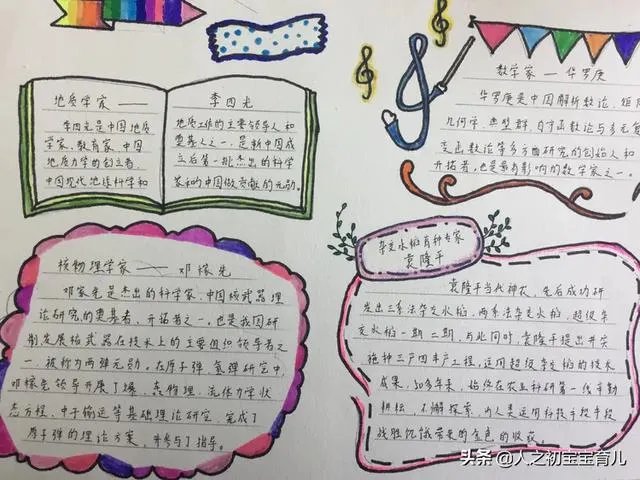 地质学家——李四光
李四光是中国地质
学家、教育家、中国
地质力学的创立者、
中国现代地球科学和
地质工作的主要领导人和
奠基人之一，是新中国成
立后第一批杰出的科学
家和为中国做贡献的元勋。
数学家——华罗庚
华罗庚是中国解析数论、矩阵
几何学、典型群、自守函数论与多元复
变函数论等多方面研究的创始人和
开拓者，也是最有影响的数学家之一。
核物理学家——邓稼先
邓稼先是杰出的科学家，中国核武器理
论研究的奠基者、开拓者之一，也是我国研
制发展核武器在技术上的主要组织领导者之
一，被称为两弹元勋。在原子弹、氢弹研究中，
邓稼先领导开展了爆、轰物理、流体力学状
态方程、中子输运等基础理论研究，完成了
原子弹的理论方案，并参与了指导。
杂交水稻育种专家
袁隆平
袁隆平当代神农，先后成功研
发出三系法杂交水稻，两系法杂交水稻，超级杂
交水稻一期二期，与此同时，袁隆平提出并实
施种三产四丰产工程，运用超级杂交稻的技术
成果，50多年来，始终在农业科研第一线辛勤
耕耘、不懈探索，为人类运用科技手段
战胜饥饿带来的金色的收获。
头条 @人之初宝宝育儿